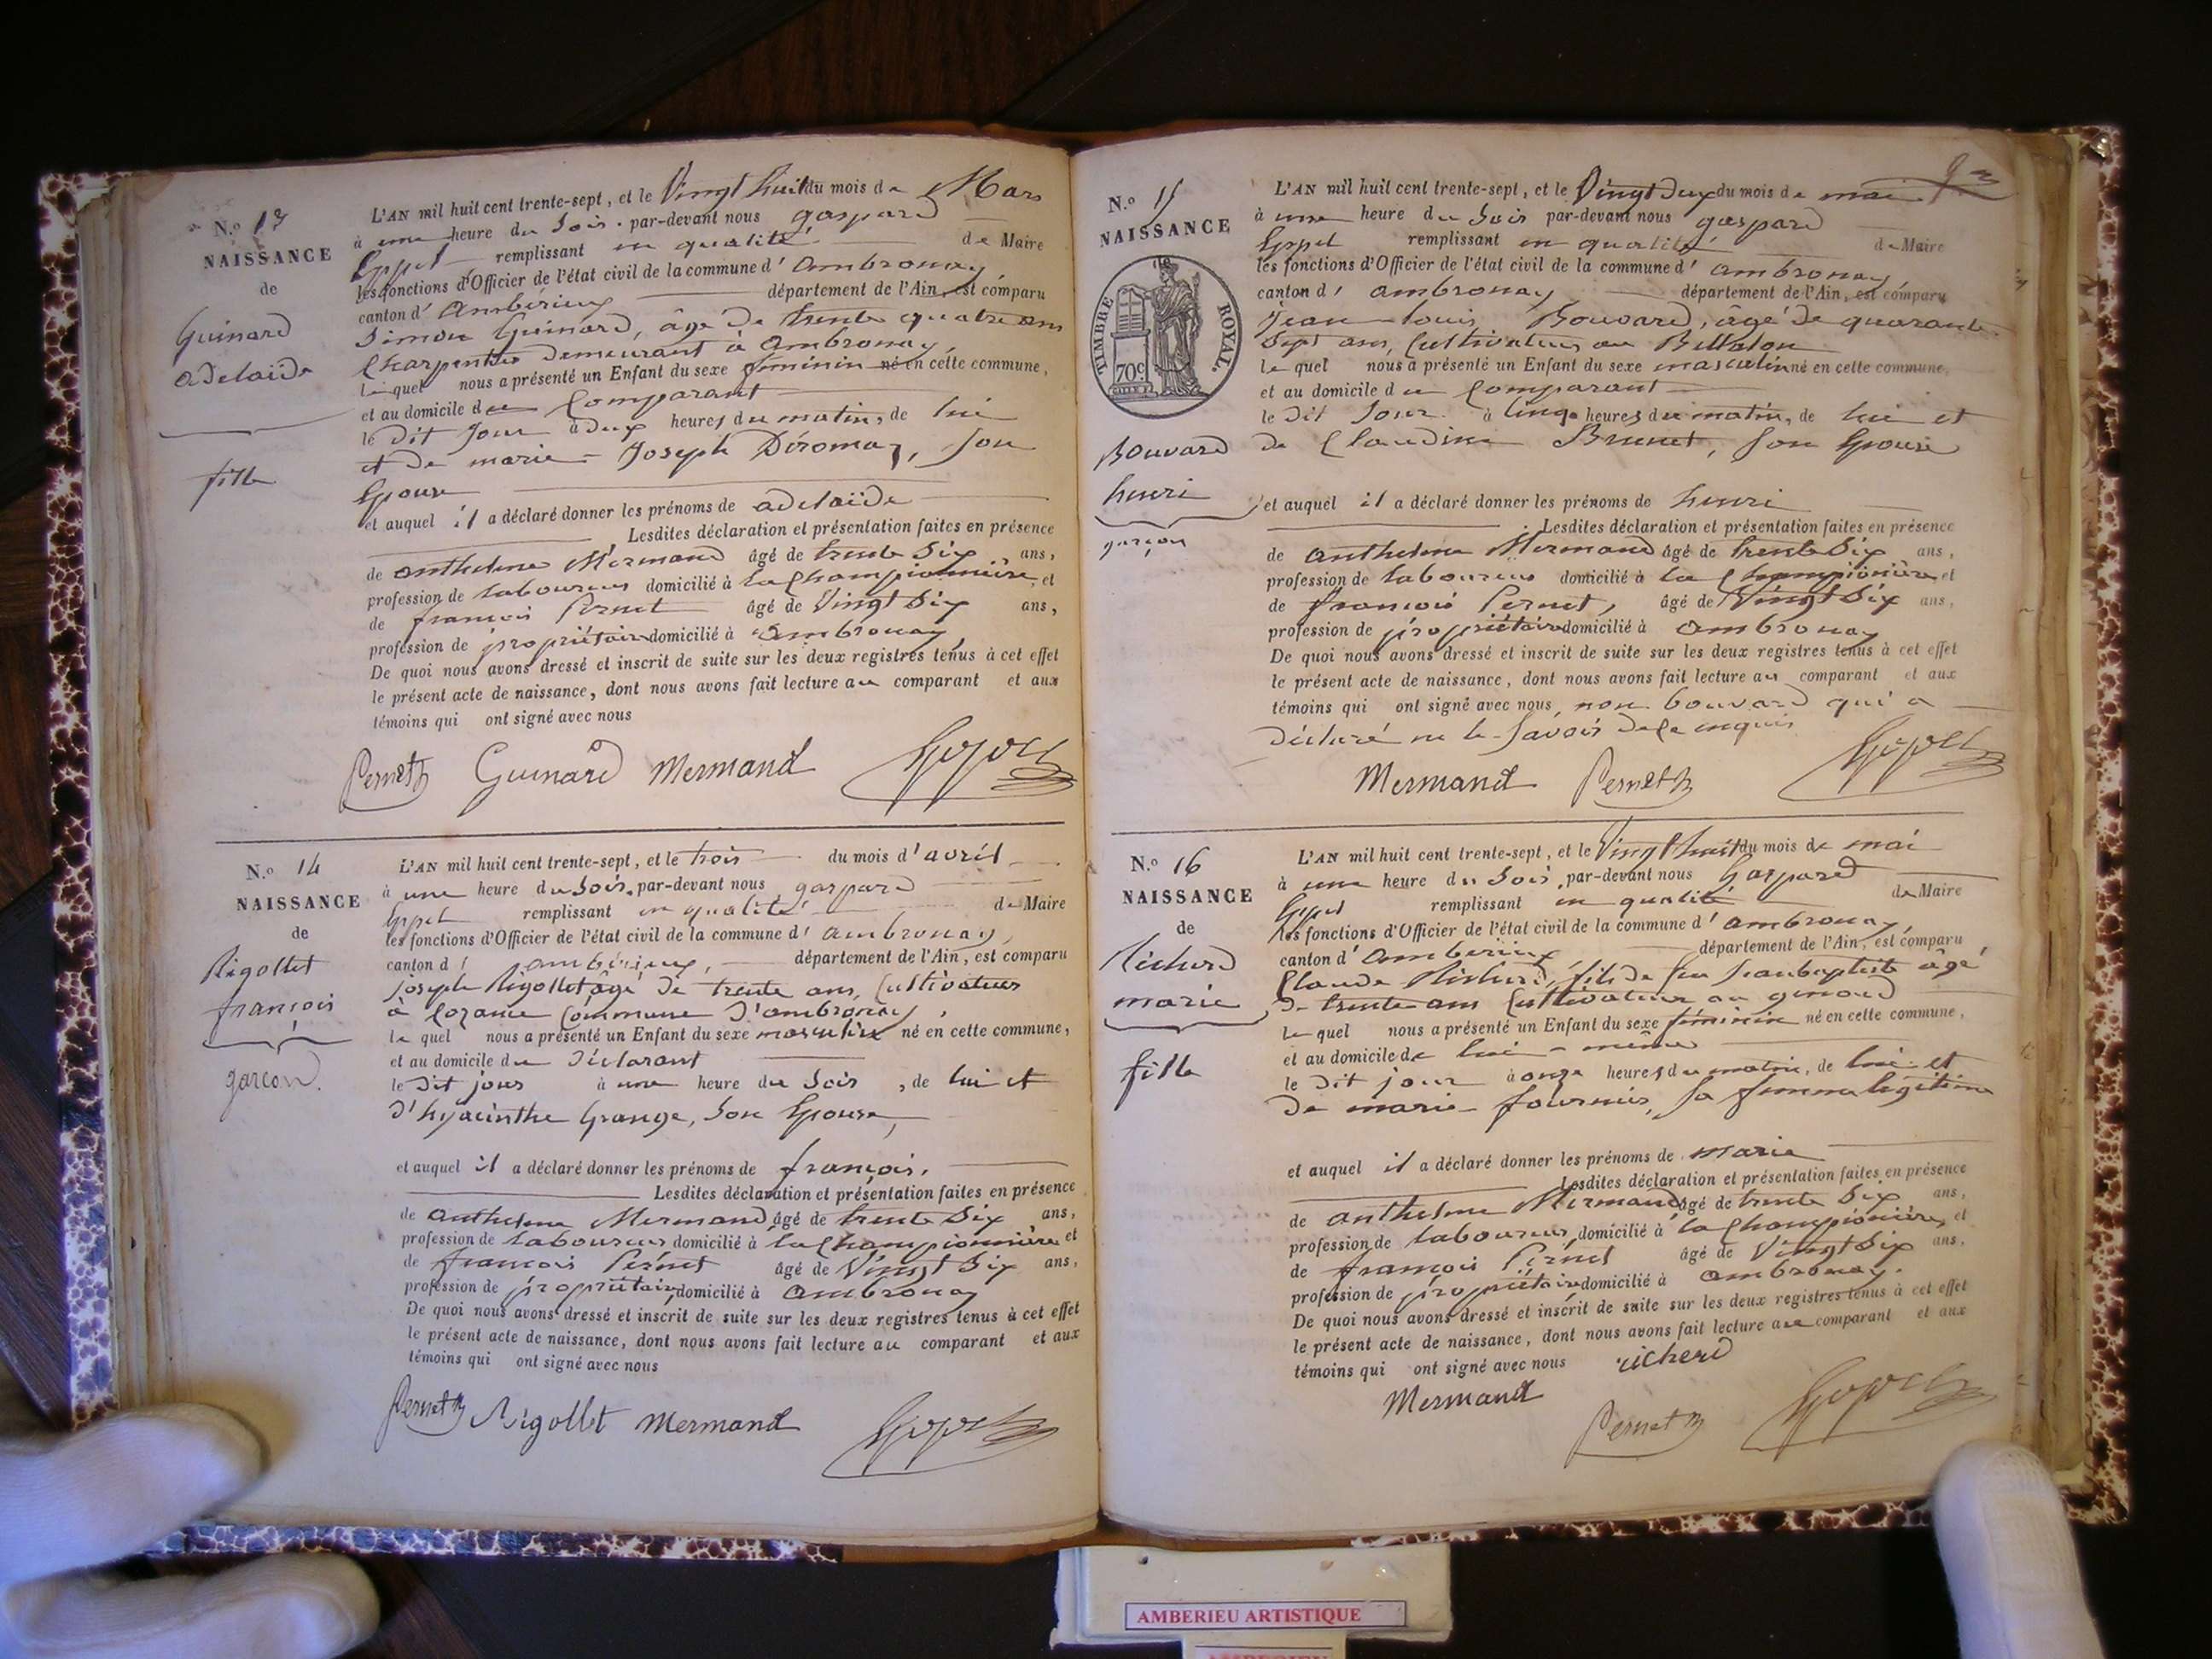 N.o 13
NAISSANCE
de
Guinard
adelaïde
fille
L'AN mil huit cent trente-sept, et le Vingt huit du mois de Mars
à une heure du Soir. par-devant nous gaspard
remplissant en qualité de Maire
les fonctions d'Officier de l'état civil de la commune d' ambronay,
canton d' Ambérieux département de l'Ain, est comparu
Simon Guinard, âgé De trente quatre ans
Charpentier Demeurant à ambronay,
le quel nous a présenté un Enfant du sexe féminin né en cette commune,
et au domicile du Comparant
le dit Jour à deux heures du matin, de lui
et De marie - Joseph , son
Epouse
et auquel il a déclaré donner les prénoms de adelaïde
Lesdites déclaration et présentation faites en présence
de anthelme Mermand âgé de trente Six ans,
profession de laboureur domicilié à la Championnière, et
de francois Pernet âgé de Vingt Six ans,
profession de propriétaire domicilié à ambronay,
De quoi nous avons dressé et inscrit de suite sur les deux registres tenus à cet effet
le présent acte de naissance, dont nous avons fait lecture au comparant et aux
témoins qui ont signé avec nous
Pernet Guinard Mermand
N.o 14
NAISSANCE
de
Rigollet
françois
garçon.
L'AN mil huit cent trente-sept, et le trois du mois d'avril
à une heure du Soir. par-devant nous gaspard
remplissant en qualité de Maire
les fonctions d'Officier de l'état civil de la commune d' ambronay,
canton d' ambérieux, département de l'Ain, est comparu
joseph Rigollet âgé De trente ans, Cultivateur
à Commune D'ambronay,
le quel nous a présenté un Enfant du sexe masculin né en cette commune,
et au domicile du Déclarant
le Dit jour à une heure du Soir, de lui et
D'hyacinthe Grange, Son Epouse,
et auquel il a déclaré donner les prénoms de françois.
Lesdites déclaration et présentation faites en présence
de anthelme Mermand âgé de trente Six ans,
profession de laboureur domicilié à la Championnière et
de francois Pernet âgé de Vingt Six ans,
profession de propriétaire domicilié à ambronay
De quoi nous avons dressé et inscrit de suite sur les deux registres tenus à cet effet
le présent acte de naissance, dont nous avons fait lecture au comparant et aux
témoins qui ont signé avec nous
Pernet Rigollet Mermand
N.o 15
NAISSANCE
TIMBRE ROYAL.
70c
Bouvard
henri
garçon
L'AN mil huit cent trente-sept, et le Vingt Deux du mois de mai
à une heure du Soir par-devant nous gaspard
remplissant en qualité de Maire
les fonctions d'Officier de l'état civil de la commune d' ambronay
canton d' ambronay département de l'Ain, est comparu
Jean-louis Bouvard, âgé De quarante
Sept ans, Cultivateur au
le quel nous a présenté un Enfant du sexe masculin né en cette commune,
et au domicile du Comparant
le Dit Jour à Cinq heures du matin, de lui et
De Claudine Brunet, Son Epouse
et auquel il a déclaré donner les prénoms de henri
Lesdites déclaration et présentation faites en présence
de anthelme Mermand âgé de trente Six ans,
profession de laboureur domicilié à la Championière et
de françois Pernet, âgé de Vingt Six ans,
profession de propriétaire domicilié à ambronay
De quoi nous avons dressé et inscrit de suite sur les deux registres tenus à cet effet
le présent acte de naissance, dont nous avons fait lecture au comparant et aux
témoins qui ont signé avec nous, non bouvard qui a
Déclaré ne le Savoir De ce enquis
Mermand Pernet
N.o 16
NAISSANCE
de
Richerd
marie
fille
L'AN mil huit cent trente-sept, et le Vingt huit du mois de mai
à une heure du Soir, par-devant nous Gaspard
remplissant en qualité de Maire
les fonctions d'Officier de l'état civil de la commune d' ambronay,
canton d' amberieux département de l'Ain, est comparu
Claude Richerd, fils de feu Jean baptiste âgé
De trente ans Cultivateur au genoud
le quel nous a présenté un Enfant du sexe féminin né en cette commune,
et au domicile de lui-même
le Dit jour à onze heures du matin, de lui et
De marie fournier, Sa femme légitime
et auquel il a déclaré donner les prénoms de marie
Lesdites déclaration et présentation faites en présence
de anthelme Mermand âgé de trente Six ans,
profession de laboureur domicilié à la Championière, et
de francois Pernet âgé de Vingt Six ans,
profession de propriétaire domicilié à ambronay.
De quoi nous avons dressé et inscrit de suite sur les deux registres tenus à cet effet
le présent acte de naissance, dont nous avons fait lecture au comparant et aux
témoins qui ont signé avec nous richerd
Mermand
Pernet
AMBERIEU ARTISTIQUE